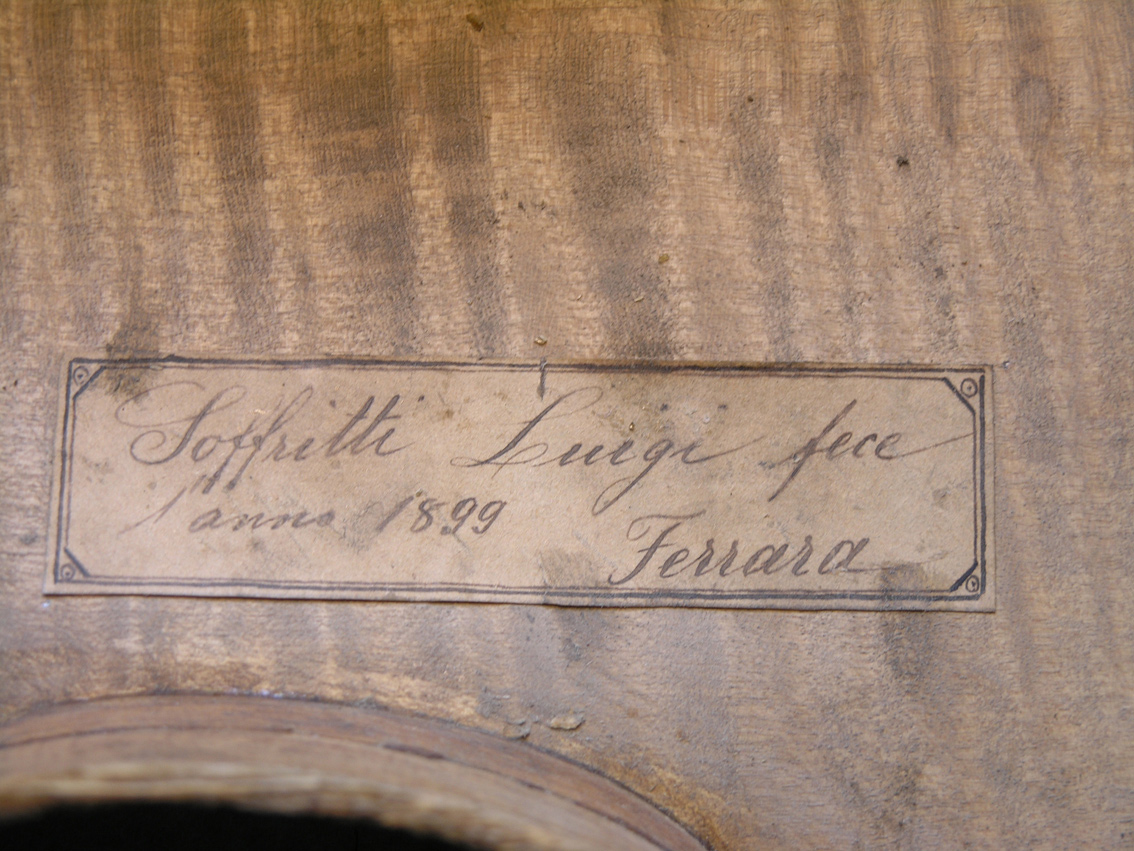 Soffritti Luigi fece
l'anno 1899
Ferrara